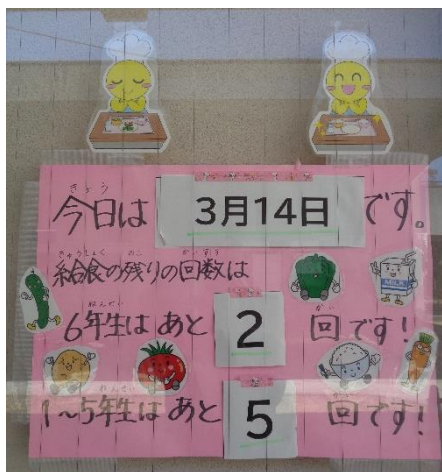 今日は 3月14日 です。
給食の残りの回数は
6年生は あと 2 回です!
1~5年生は あと 5 回です!
MILK